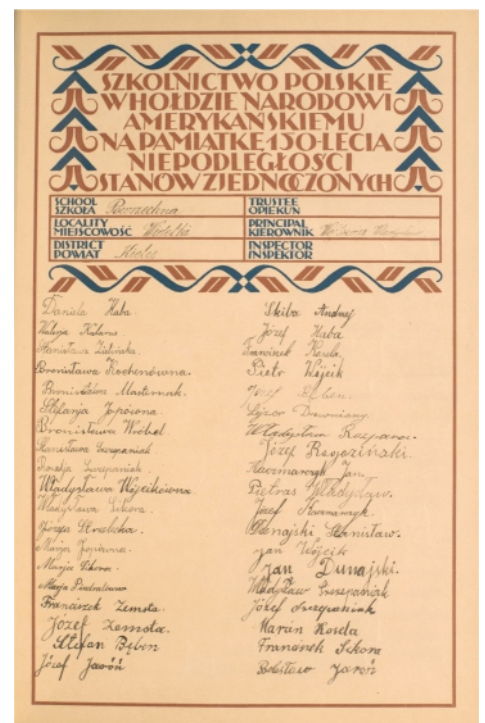 SZKOLNICTWO POLSKIE
W HOŁDZIE NARODOWI
AMERYKAŃSKIEMU
NA PAMIĄTKĘ 150-LECIA
NIEPODLEGŁOŚCI
STANÓW ZJEDNOCZONYCH
SCHOOL
SZKOŁA Powszechna
TRUSTEE
OPIEKUN
LOCALITY
MIEJSCOWOŚĆ
PRINCIPAL
KIEROWNIK
DISTRICT
POWIAT Kielce
INSPECTOR
INSPEKTOR
Daniela Haba.
Walerja
Stanisława Zielińska.
Bronisława Kochenówna.
Bronisława Masternak.
Stefanja
Bronisława Wróbel.
Stanisława Szczepaniak
Rozalja Szczepaniak.
Władysława Wójcikówna
Władysława Sikora.
Józefa
Marja
Marja Sikora.
Marja
Franciszek Zemsta.
Józef Zemsta.
Stefan Bęben
Józef Jaroń
Skiba Andrzej
Józef Haba
Franciszek Kosela.
Piotr Wójcik
Józef Bęben.
Drewniany.
Władysław
Józef
Kaczmarczyk Jan.
Pietras Władysław.
Józef Kaczmarczyk.
Dunajski Stanisław.
Jan Wójcik
Jan Dunajski.
Władysław Szczepaniak
Józef Szczepaniak
Marian Kosela
Franciszek Sikora
Bolesław Jaroń